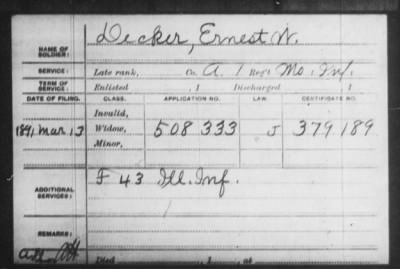 Decker, Ernest W.
NAME OF SOLDIER:
SERVICE: Late rank, Co. A. 1 Reg't Mo. Inf.
TERM OF SERVICE: Enlisted , 1 Discharged , 1
DATE OF FILING. CLASS. APPLICATION NO. LAW. CERTIFICATE NO.
Invalid,
1891, Mar. 13 Widow, 508 333 J 379 189
Minor,
ADDITIONAL SERVICES: F 43 Ill. Inf.
REMARKS:
Died , 1 , at